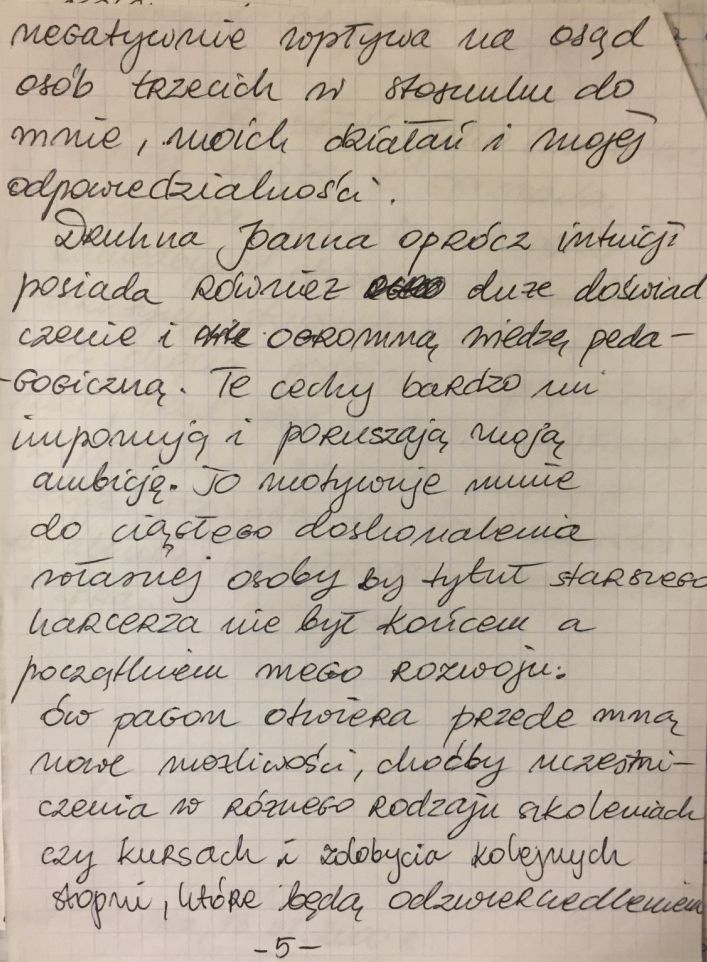 negatywnie wpływa na osąd
osób trzecich w stosunku do
mnie, moich działań i mojej
odpowiedzialności.
Druhna Joanna oprócz intuicji
posiada również duże doświad
czenie i ogromną wiedzę peda-
-gogiczną. Te cechy bardzo mi
imponują i poruszają moją
ambicję. To motywuje mnie
do ciągłego doskonalenia
własnej osoby by tytuł starszego
harcerza nie był końcem a
początkiem mego rozwoju.
Ów pagon otwiera przede mną
nowe możliwości, choćby uczestni-
czenia w różnego rodzaju szkoleniach
czy kursach i zdobycia kolejnych
stopni, które będą odzwierciedleniem
-5-